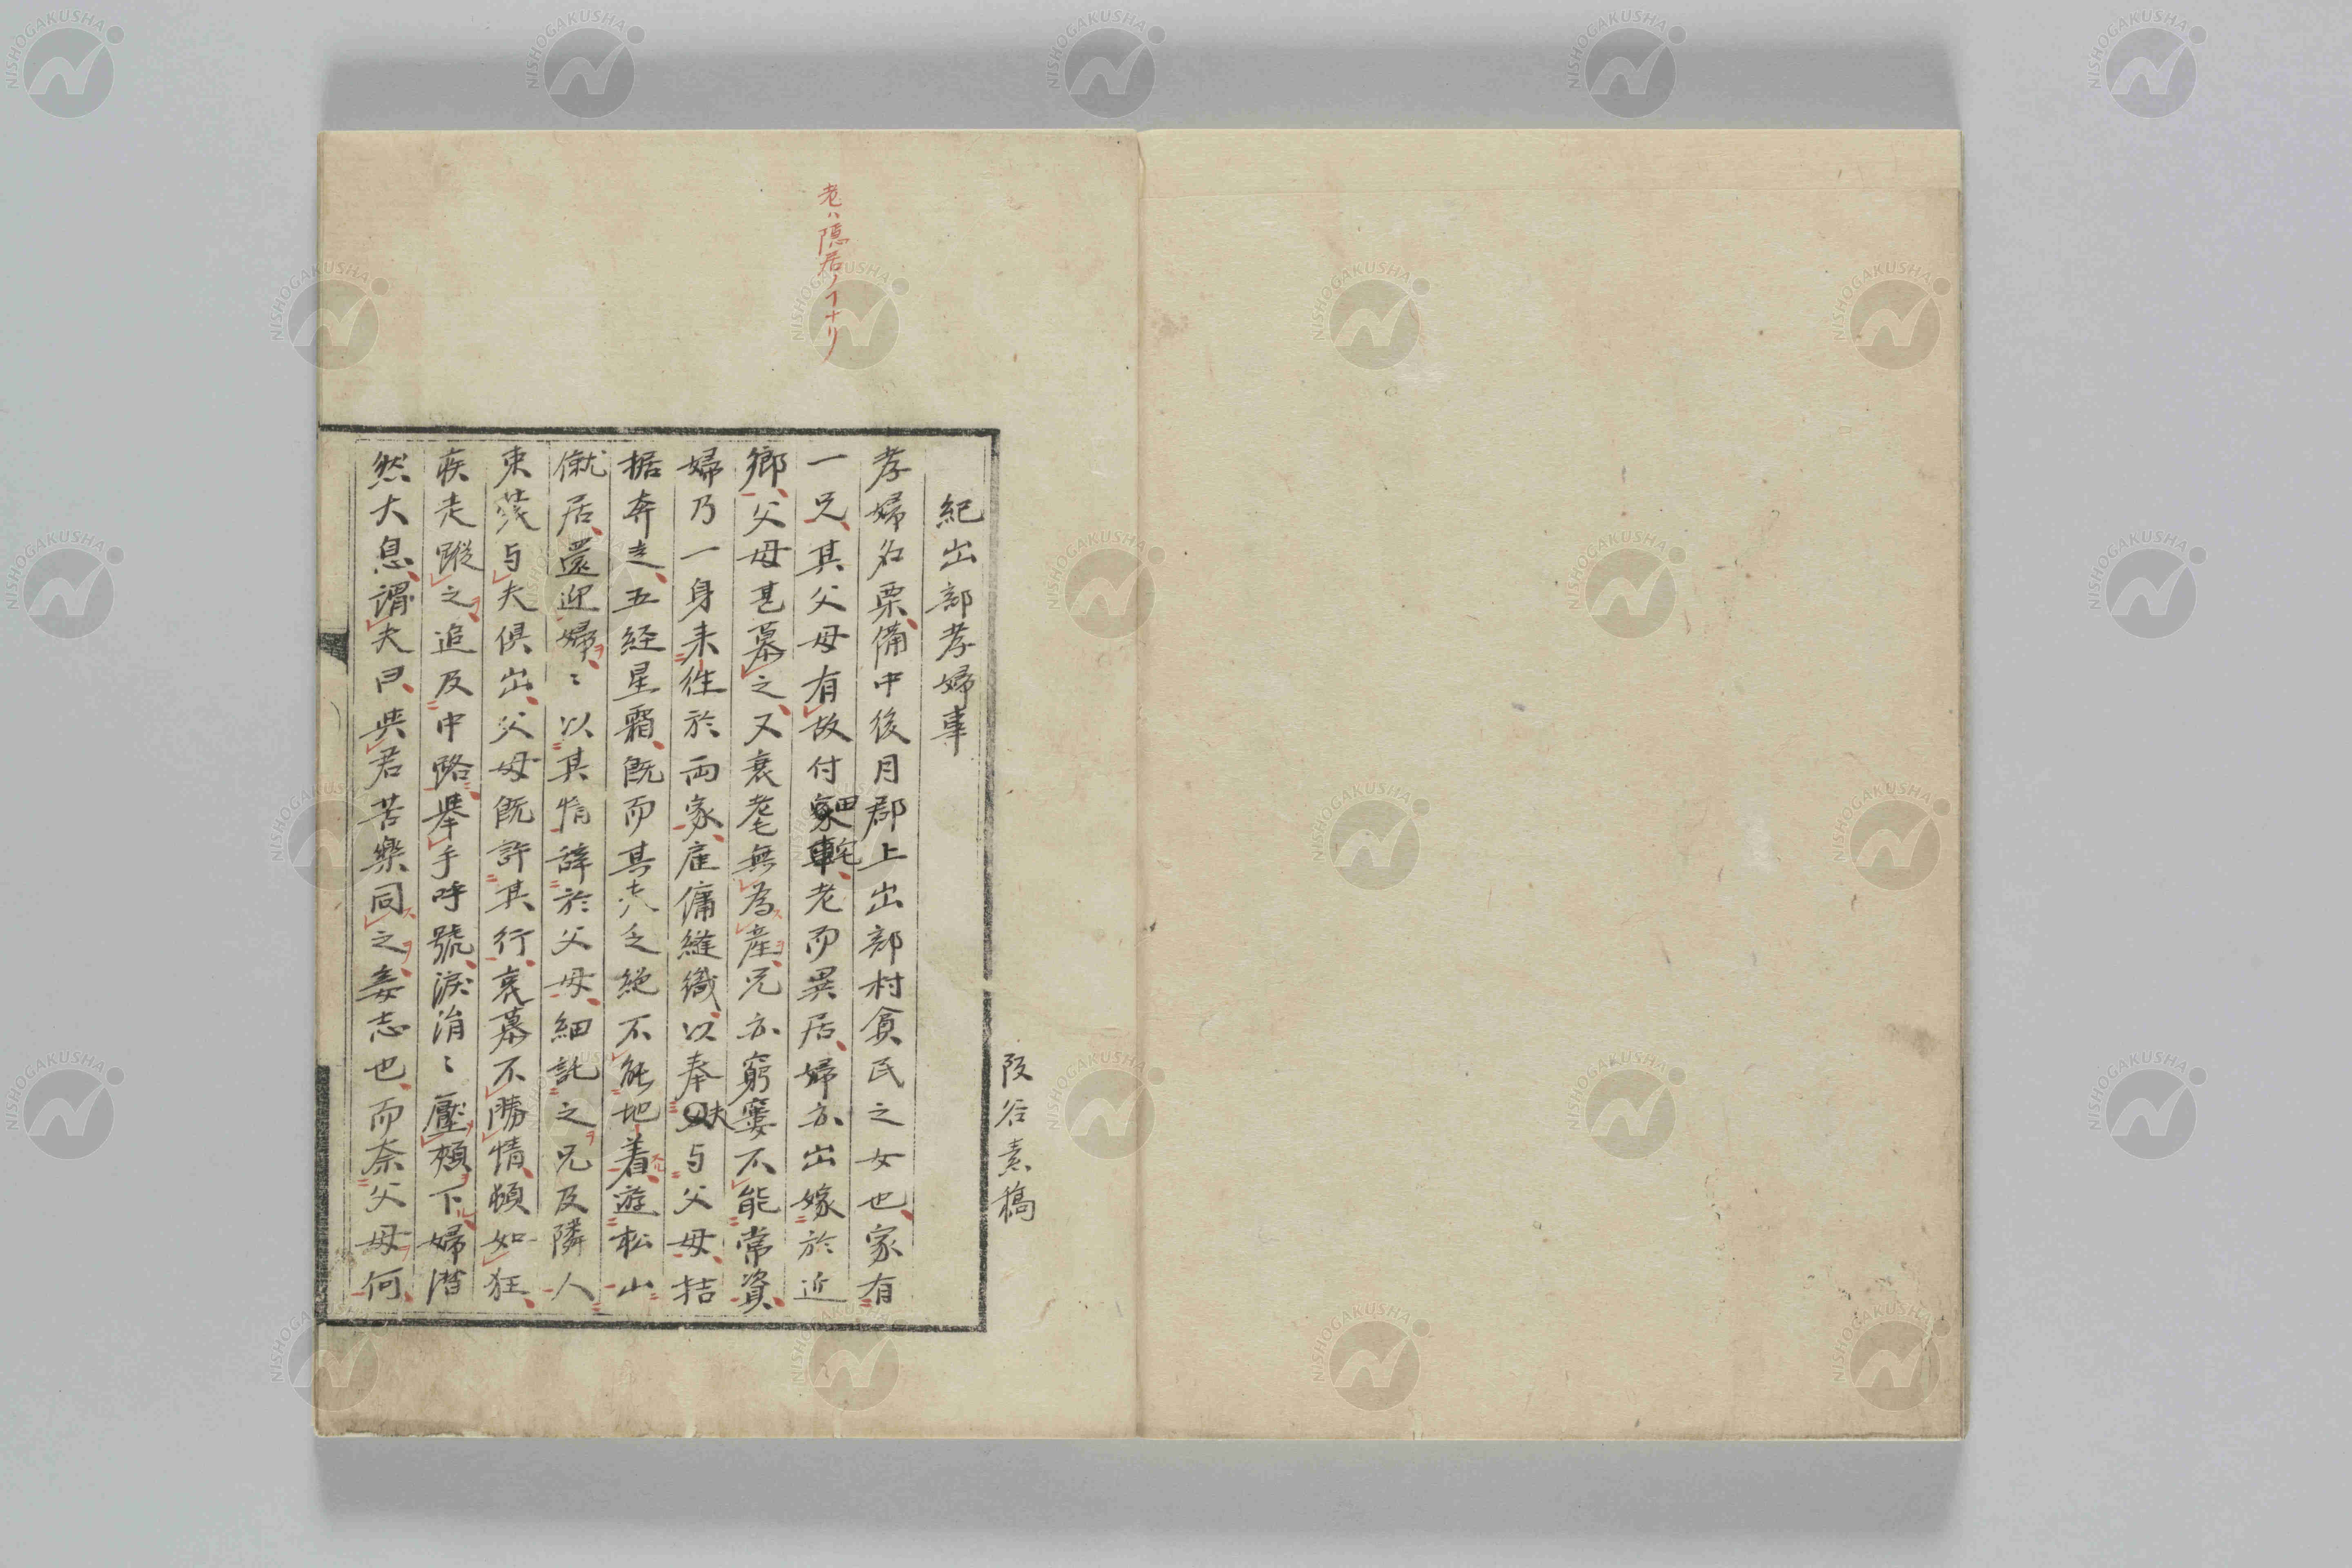 老ハ隠居ノヿナリ
阪谷素稿
紀出部孝婦事
孝婦名栗備中後月郡上出部村貧民之女也家有
一兄其父母有故付田宅老而異居婦亦出嫁於近
鄉父母甚慕之又衰耄無為産兄亦窮窶不能常資
婦乃一身来往於両家雇傭縫織以奉夫与父母拮
据奔走五経星霜既而其夫乏絶不能地着遊松山
僦居還迎婦〻以其情辞於父母細託之兄及隣人
束装与夫倶出父母既許其行哀慕不勝情頓如狂
疾走蹤之追及中路挙手呼號涙涓〻壓頬下婦潜
然大息謂夫曰與君苦樂同之妾志也而奈父母何
NISHOGAKUSHA